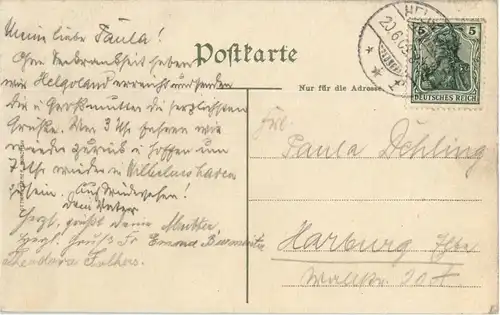 Meine liebe Paula!
Ohne Seekrankheit haben
wir Helgoland erreicht und senden
Dir u. Großmutter die herzlichsten
Grüße. Um 3 Uhr fahren wir
wieder zurück u. hoffen um
7 Uhr wieder in Wilhelmshaven
zu sein. Auf Wiedersehen!
Dein Vater
Herzl. grüßt Deine Mutter
Herzl. Gruß Fr.
Theodora
Postkarte
Nur für die Adresse.
HEL
20.6.0
5 5
DEUTSCHES REICH
Frl.
Paula Dehling
Harburg Elbe
Wallstr. 20